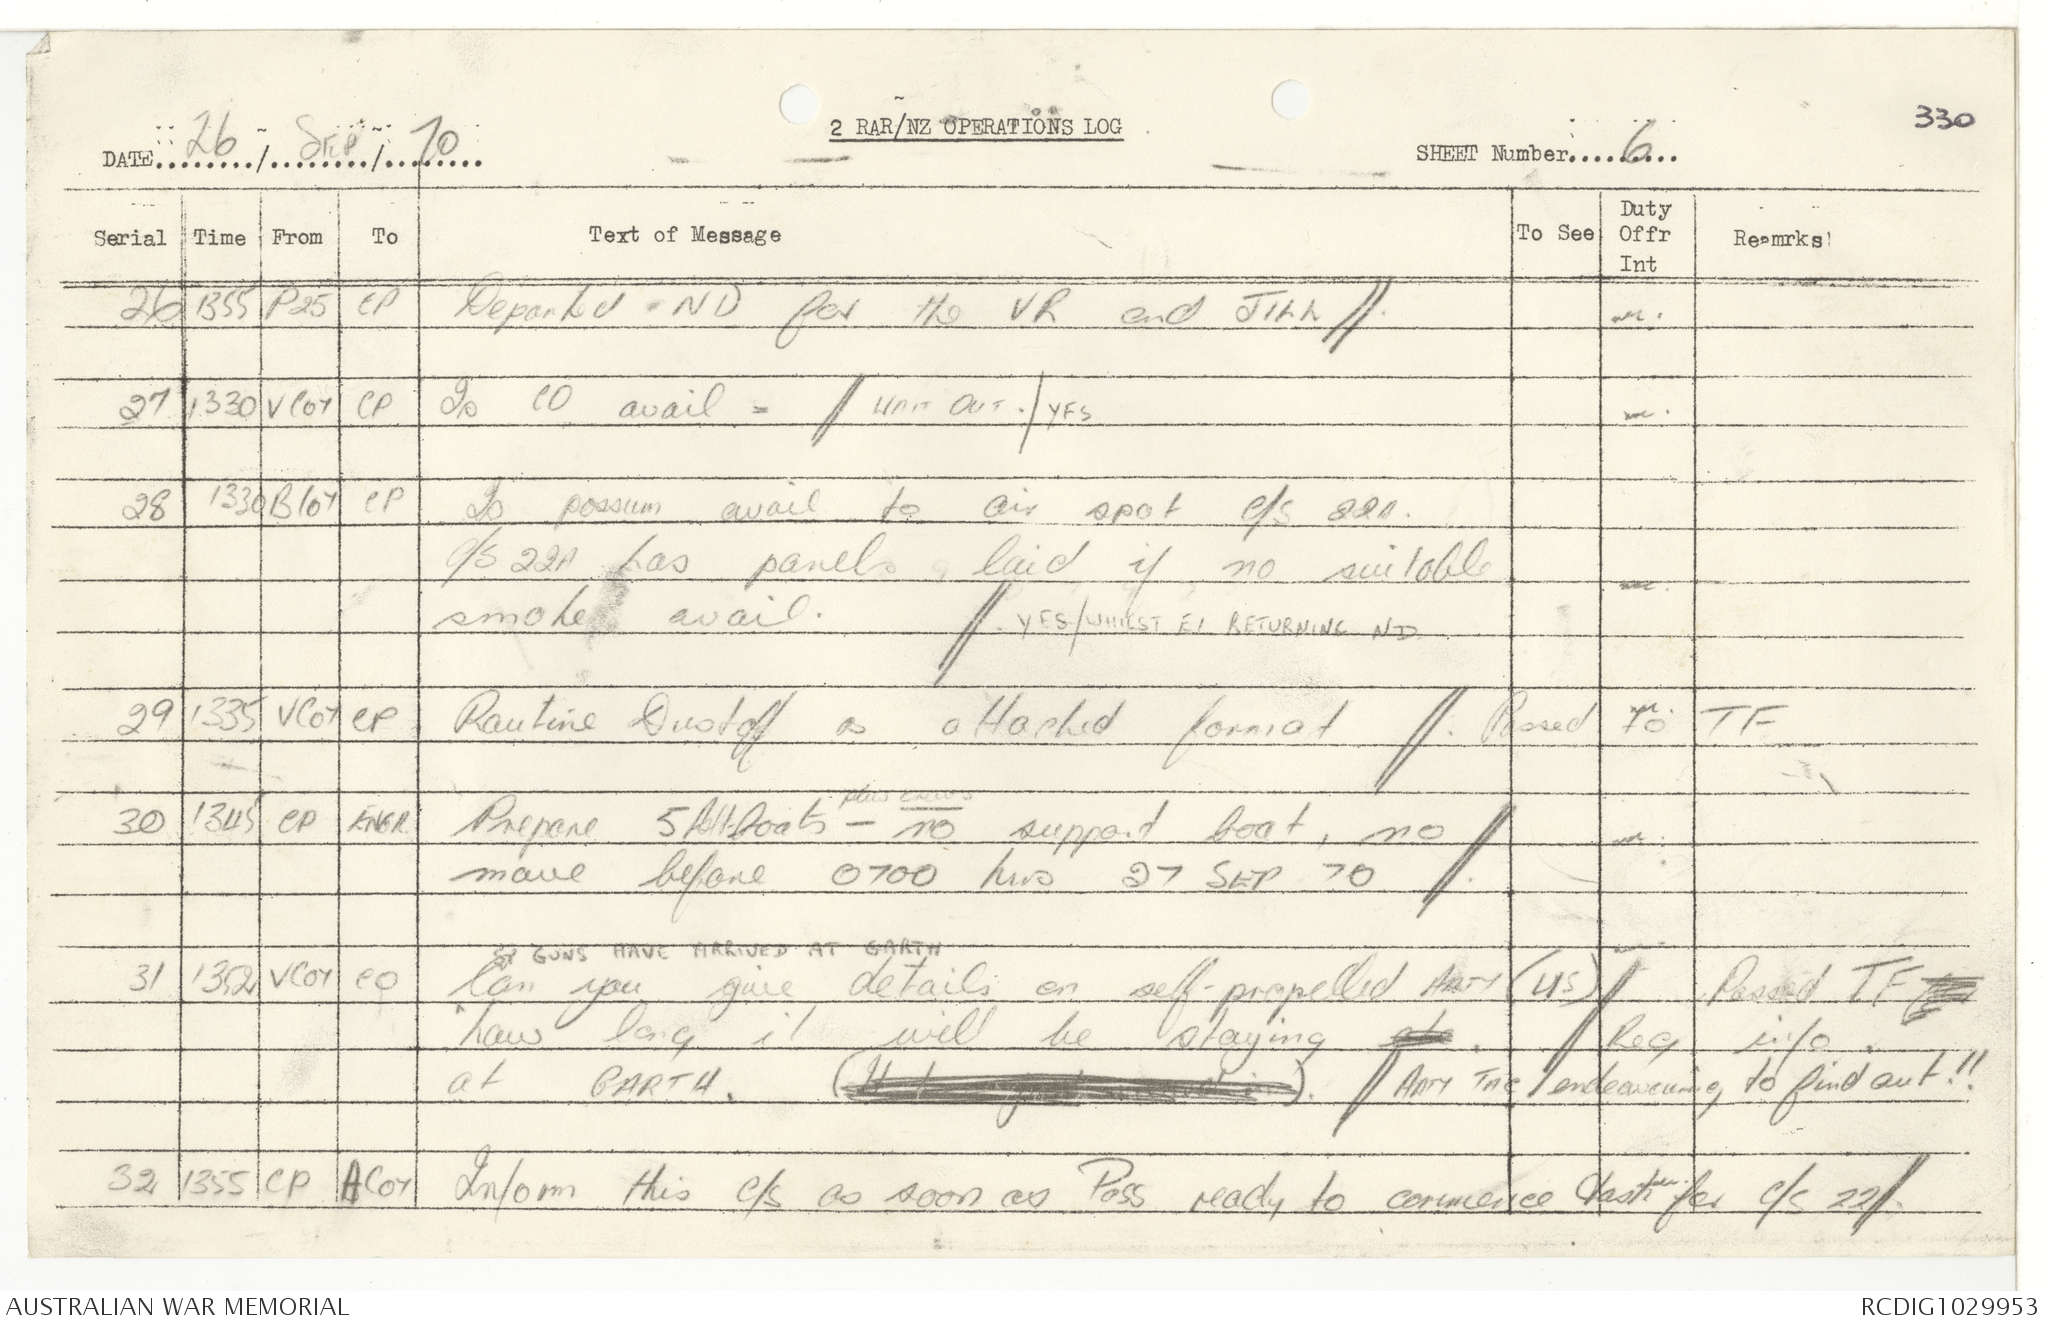 330
2 RAR/NZ OPERATIONS LOG
DATE 26 / SEP / 70
SHEET Number 6
Serial Time From To Text of Message To See Duty Offr Int Remrks
26 1355 P25 CP Departed ND for the VR and JILL //.
27 1330 VCOY CP Is CO avail = // WAIT OUT. / YES
28 1330 BCOY CP Is possum avail to air spot c/s 22A.
c/s 22A has panels laid if no suitable
smoke avail. // YES/WHILST E1 RETURNING ND
29 1335 VCOY CP Routine Dustoff as attached format //. Passed to TF
plus crews
30 1345 CP ENGR. Prepare 5 boats — no support boat, no
move before 0700 hrs 27 SEP 70 //.
GUNS HAVE ARRIVED AT GARTH
31 1352 VCOY CO Can you give details on self-propelled ARTY (US) // Passed TF
how long it will be staying . // Req info.
at GARTH. // ARTY TAC / endeavouring to find out!!
32 1355 CP ACOY Inform this c/s as soon as Poss ready to commence for c/s 22 //.
AUSTRALIAN WAR MEMORIAL
RCDIG1029953